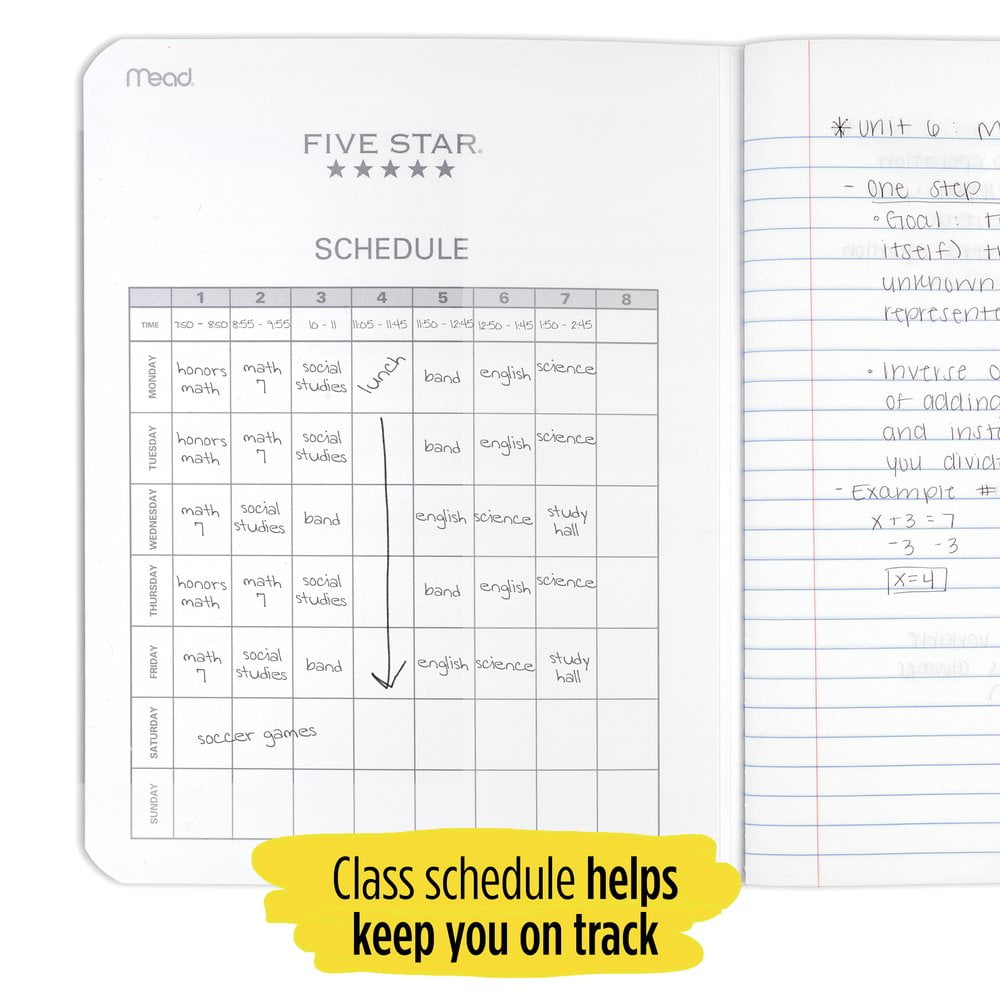 Mead
FIVE STAR
SCHEDULE
1 2 3 4 5 6 7 8
TIME 7:50 - 8:50 8:55 - 9:55 10 - 11 11:05 - 11:45 11:50 - 12:45 12:50 - 1:45 1:50 - 2:45
MONDAY honors math math 7 social studies lunch band english science
TUESDAY honors math math 7 social studies band english science
WEDNESDAY math 7 social studies band english science study hall
THURSDAY honors math math 7 social studies band english science
FRIDAY math 7 social studies band english science study hall
SATURDAY soccer games
SUNDAY
* Unit 6:
- one step
• Goal:
itself)
unknown
• inverse
of adding
and
you
- Example #
x + 3 = 7
-3 -3
x = 4
Class schedule helps
keep you on track